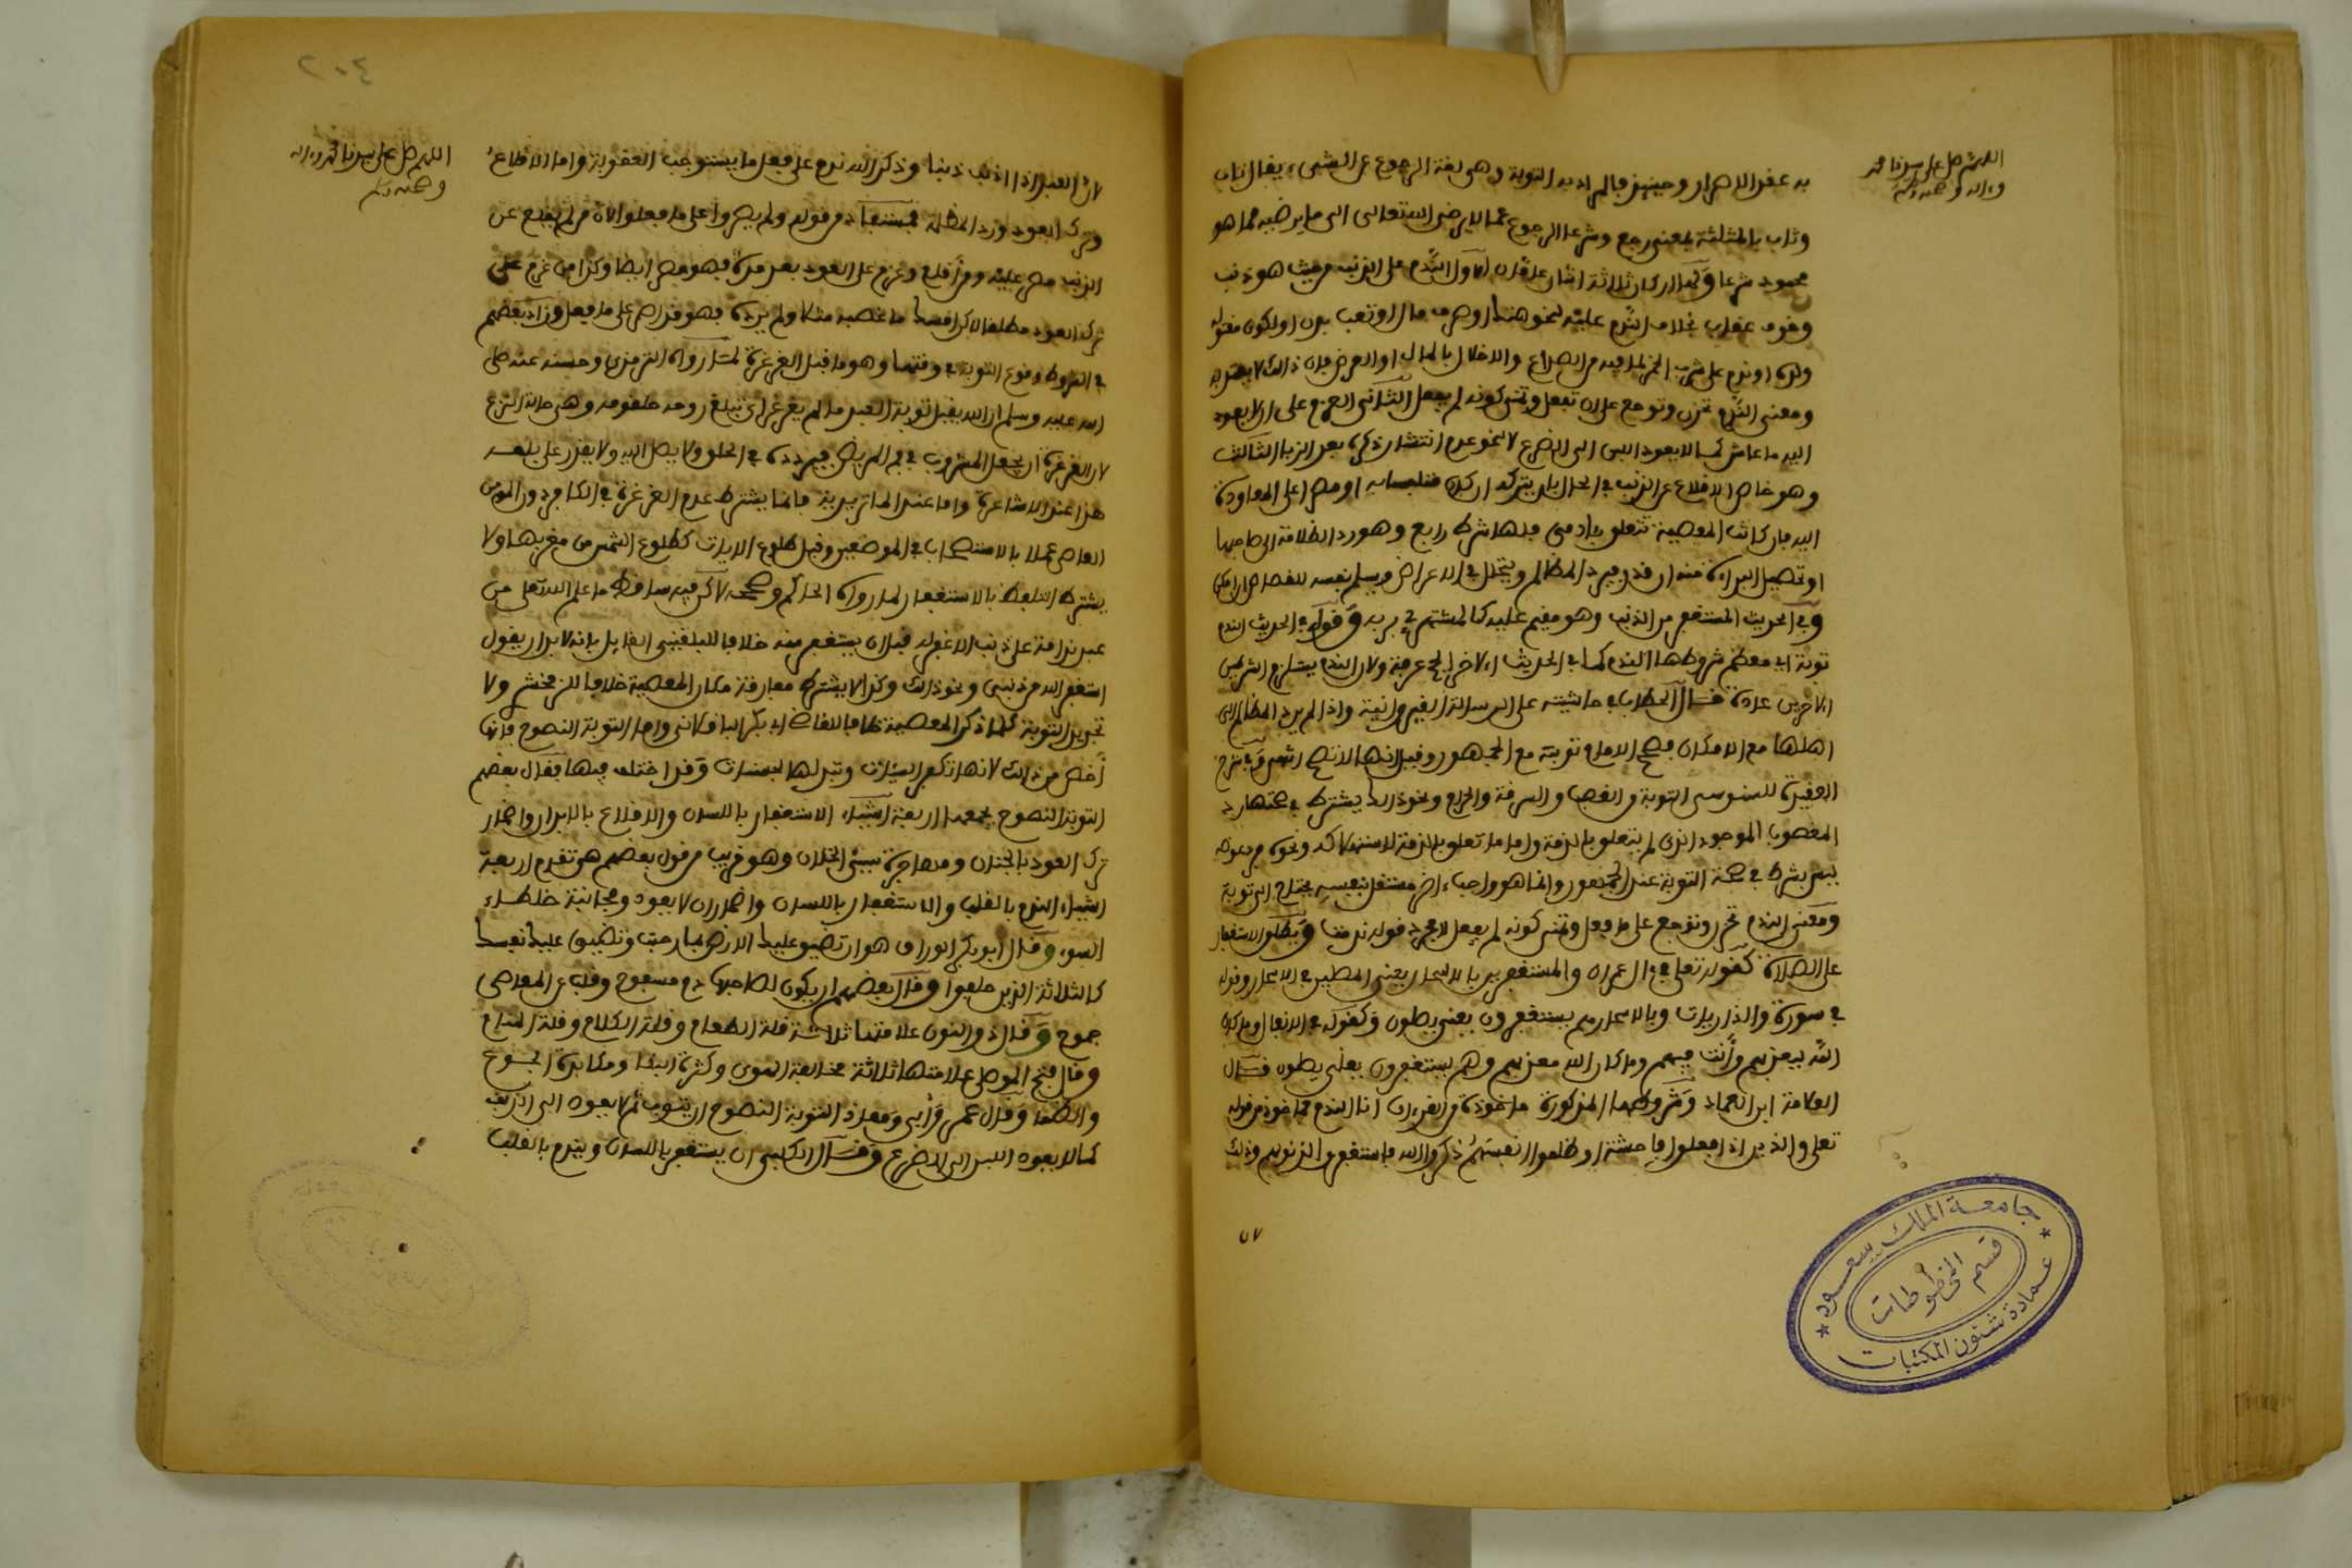 اللهم صل على سيدنا محمد
وءاله وصحبه وسلم
به عقد الاصرار وحينئذ فالمراد به التوبة وهي لغة الرجوع عن الشيء يقال تاب
وثاب بالمثلثة بمعنى رجع وشرعا الرجوع عما لا يرضي الله تعالى الى ما يرضيه مما هو
محمود شرعا ولها اركان ثلاثة الاول الندم على الذنب من حيث هو ذنب
وخوف عقاب بخلاف الندم عليه لنحو هتك او صرف مال او تعب بدن او لكون مقتوله
ولده او ندم على شرب الخمر لما فيه من الصداع والاخلال بالمال او العرض فان ذالك لا يعتبر
ومعنى الندم تحزن وتوجع على ان فعل وتمنى كونه لم يفعل الثاني العزم على ان لا يعود
اليه ما عاش كما لا يعود اللبن الى الضرع لا لنحو عدم انتشار ذكره بعد الزنا الثالث
وهو خاص الاقلاع عن الذنب في الحال بان يتركه ان كان متلبسا به او مصرا على المعاودة
اليه فان كانت المعصية تتعلق بادمي فلها شرط رابع وهو رد الظلامة الى صاحبها
او تحصيل البراءة منه ان قدر فيرد المظالم ويتحلل في الاعراض ويسلم نفسه للقصاص ان امكن
وفي الحديث المستغفر من الذنب وهو مقيم عليه كالمستهزئ بربه وقوله في الحديث الندم
توبة اي معظم شروطها الندم كما في الحديث الاخر الحج عرفة ولان الندم يستلزم الشرطين
الاخرين عادة قال الحطاب في حاشيته على الرسالة ابن غير وانية واذا لم يرد المظالم الى
اهلها مع الامكان فصحح الامام توبته مع الجمهور وقيل انها لا تصح انتهى وفي شرح
العقيدة للسنوسي التوبة من الغصب والسرقة والحرام ونحو ذالك يشترط في صحتها رد
المغصوب الموجود الذي لم يتعلق بالذمة واما ما تعلق بالذمة لاستهلاكه ونحوه فرد عوضه
ليس بشرط في صحة التوبة عند الجمهور وانما هو واجب ءاخر مستقل بنفسه يحتاج الى توبة
ومعنى الندم تحزن وتوجع على ما فعل وتمنى كونه لم يفعل لا مجرد قوله ندمت ويطلق الاستغفار
على الصلاة كقوله تعلى في ءال عمران والمستغفرين بالاسحار يعني المصلين في الاسحار وقوله
في سورة والذاريات وبالاسحار هم يستغفرون يعني يصلون وكقوله في الانفال وما كان
الله ليعذبهم وأنت فيهم وما كان الله معذبهم وهم يستغفرون يعني يصلون قال
العلامة ابن العماد وشروطها المذكورة ماخوذة من القرءان اما الندم فماخوذ من قوله
تعلى والذين اذا فعلوا فاحشة او ظلموا انفسهم ذكروا الله فاستغفروا لذنوبهم وذلك
لان
جامعة الملك سعود
قسم المخطوطات
عمادة شئون المكتبات
٢٠٤
اللهم صل على سيدنا محمد وءاله
وصحبه وسلم
لان العبد اذا اذنب ذنبا وذكر الله ندم على فعل ما يستوجب العقوبة واما الاقلاع
وترك العود ورد المظالم فمستفاد من قوله ولم يصروا على ما فعلوا لان من لم يقلع عن
الذنب مصر عليه ومن أقلع وعزم على العود بعد مدة فهو مصر ايضا وكذا من عزم على
ترك العود مطلقا لاكن امسك ما غصبه مثلا ولم يرده فهو قد اصر على ما فعل وزاد بعضهم
في الشروط وقوع التوبة في وقتها وهو ما قبل الغرغرة لما رواه الترمذي وحسنه عنه صلى
الله عليه وسلم ان الله يقبل توبة العبد ما لم يغرغر اي تبلغ روحه حلقومه وهي حالة النزع
لان الغرغرة ان يجعل المشروب في فم المريض فيردده في الحلق ولا يصل اليه ولا يقدر على بلعه
هذا عند الاشاعرة واما عند الماتريدية فانما يشترط عدم الغرغرة في الكافر دون المومن
العاصي عملا بالاستصحاب في الموضعين وقبل طلوع الايات كطلوع الشمس من مغربها ولا
يشترط التلفظ بالاستغفار لما رواه الحاكم وصححه لاكن فيه ساقط ما علم الله تعلى من
عبد ندامة على ذنب الا غفر له قبل ان يستغفر منه خلافا للبلقيني القايل بانه لا بد ان يقول
استغفر الله من ذنبي ونحو ذالك وكذا لا يشترط مفارقة مكان المعصية خلافا للزمخشري ولا
تجديد التوبة كلما ذكر المعصية خلافا للقاضي ابي بكر الباقلاني واما التوبة النصوح فانها
أخص من ذالك لانها تكفر السيئات وتبدلها لحسنات وقد اختلف فيها فقال بعضهم
التوبة النصوح يجمعها اربعة اشياء الاستغفار باللسان والاقلاع بالابدان واضمار
ترك العود بالجنان ومهاجرة سيئ الخلان وهو قريب من قول بعضهم هي تقدم اربعة
اشياء الندم بالقلب والاستغفار باللسان واضمار ان لا يعود ومجانبة خلطاء
السوء وقال ابو بكر الوراق هو ان تضيق عليك الارض بما رحبت وتضيق عليك نفسك
كالثلاثة الذين خلفوا وقال بعضهم ان يكون لصاحبها دمع مسفوح وقلب عن المعاصي
جموح وقال ذو النون علامتها ثلاثة قلة الطعام وقلة الكلام وقلة المنام
وقال فتح الموصلي علامتها ثلاثة مخالفة الهوى وكثرة البكا ومكابدة الجوع
والظما وقال عمر وأبي ومعاذ التوبة النصوح ان يتوب ثم لا يعود الى الذنب
كما لا يعود اللبن الى الضرع وقال الكلبي ان يستغفر باللسان ويندم بالقلب